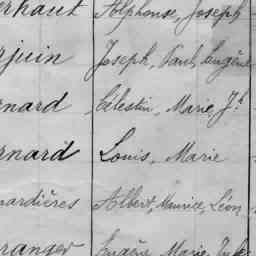 erhaut Alphonse, Joseph
rjuin Joseph, Paul, Eugène
rnard Célestin, Marie, Jh
rnard Louis, Marie
nardières Albert, Maurice, Léon
ranger Eugène, Marie